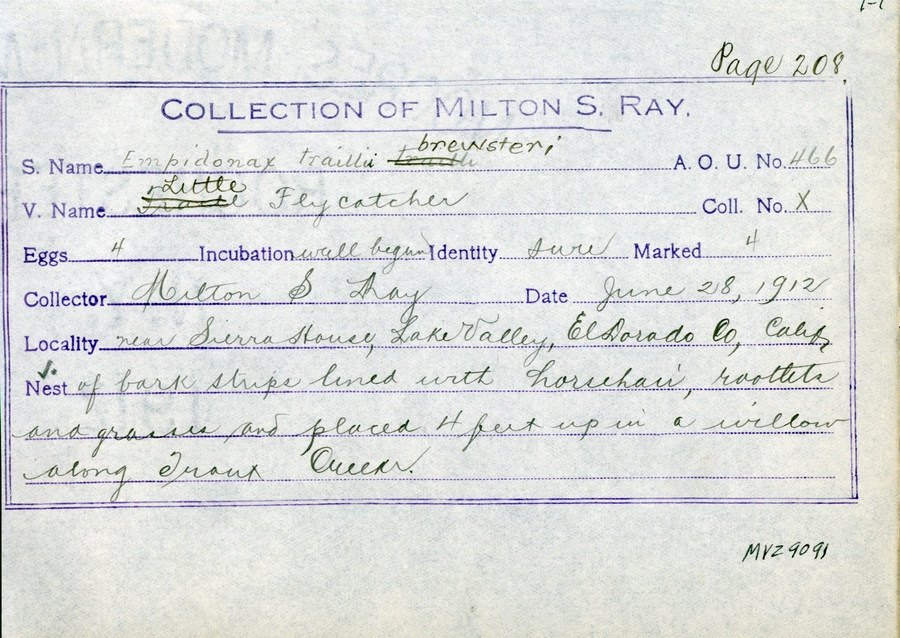 Page 208
COLLECTION OF MILTON S. RAY.
brewsteri
S. Name Empidonax traillii traillii A. O. U. No. 466
Little
V. Name Flycatcher Coll. No. X
Eggs 4 Incubation well begun Identity sure Marked 4
Collector Milton S Ray Date June 28, 1912
Locality near Sierra House, Lake Valley, El Dorado Co, Calif,
Nest of bark strips lined with horsehair, rootlets
and grasses and placed 4 feet up in a willow
along Trout Creek.
MVZ 9091